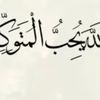 للَّهَ يُحِبُّ الْمُتَوَكِّ